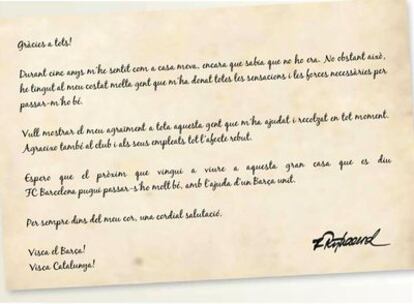 Gràcies a tots!
Durant cinc anys m'he sentit com a casa meva, encara que sabia que no ho era. No obstant això,
he tingut al meu costat molta gent que m'ha donat totes les sensacions i les forces necessàries per
passar-m'ho bé.
Vull mostrar el meu agraïment a tota aquesta gent que m'ha ajudat i recolzat en tot moment.
Agraeixo també al club i als seus empleats tot l'afecte rebut.
Espero que el pròxim que vingui a viure a aquesta gran casa que es diu
FC Barcelona pugui passar-s'ho molt bé, amb l'ajuda d'un Barça unit.
Per sempre dins del meu cor, una cordial salutació.
Visca el Barça!
Visca Catalunya!